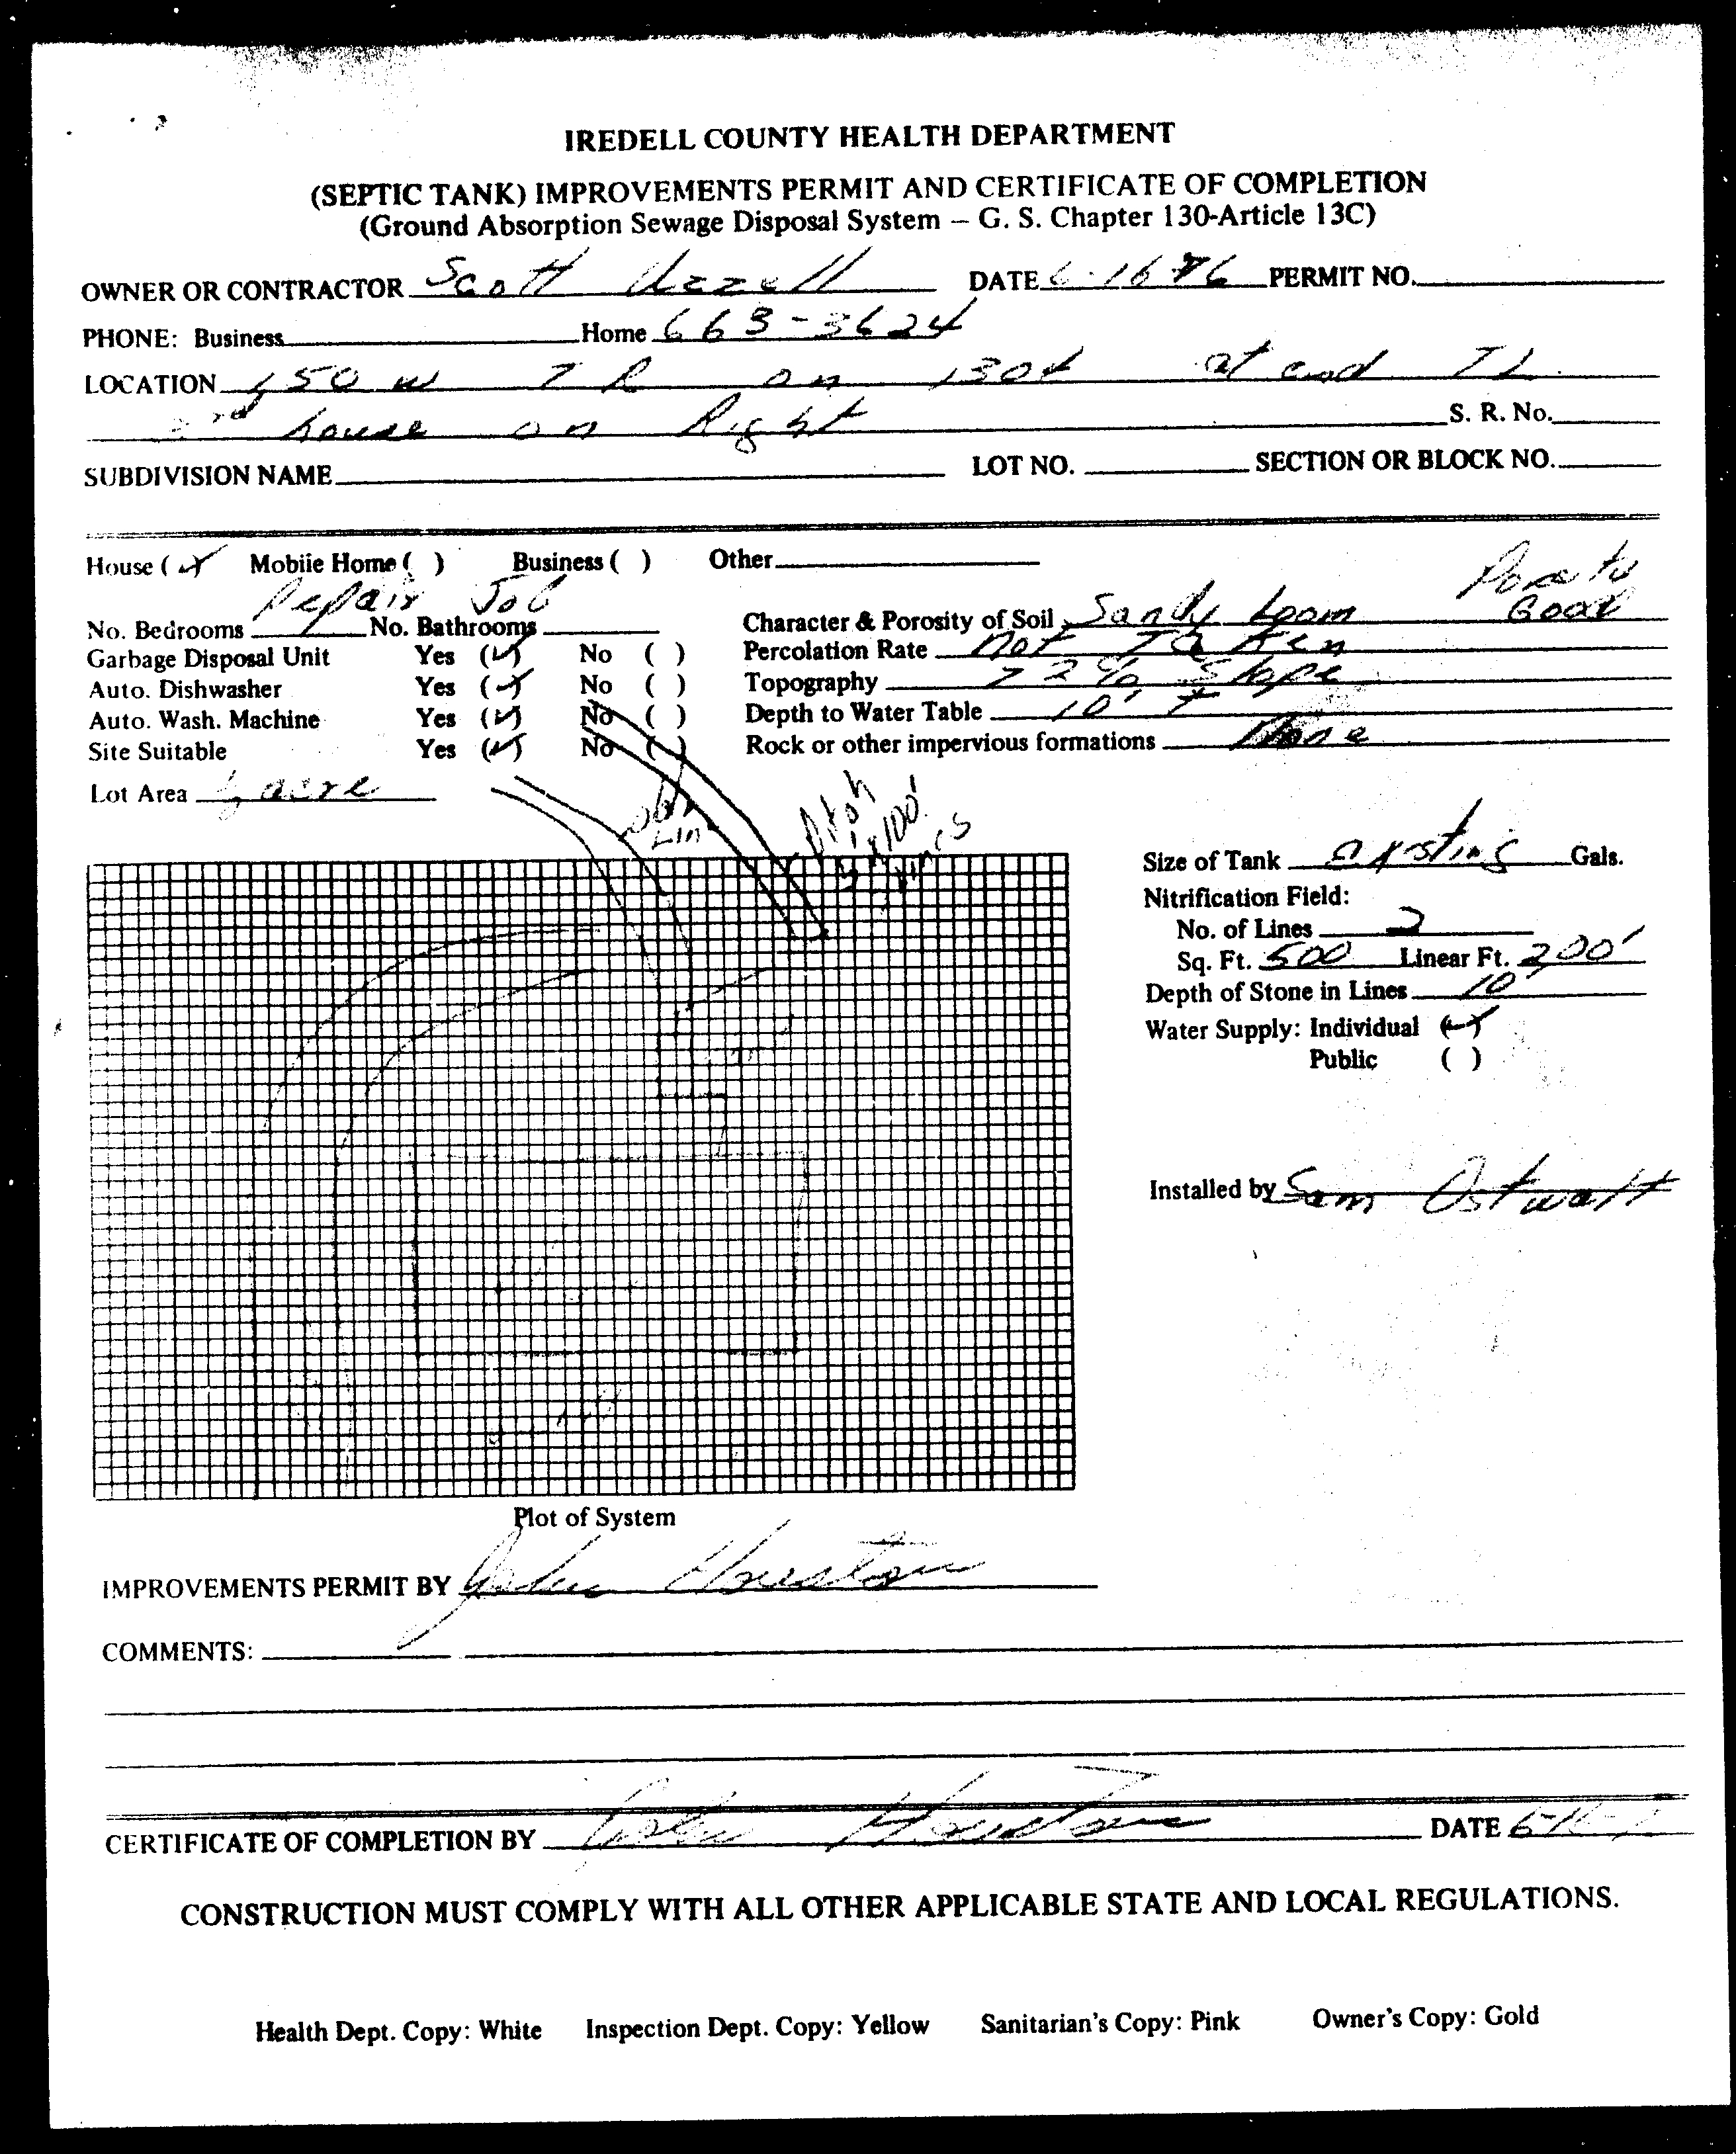 IREDELL COUNTY HEALTH DEPARTMENT
(SEPTIC TANK) IMPROVEMENTS PERMIT AND CERTIFICATE OF COMPLETION
(Ground Absorption Sewage Disposal System – G. S. Chapter 130-Article 13C)
OWNER OR CONTRACTOR Scott Uzzell DATE 6-16 76 PERMIT NO.
PHONE: Business Home 663-3624
LOCATION 150 W T R on 1304 at end TL
2nd house on Right S. R. No.
SUBDIVISION NAME LOT NO. SECTION OR BLOCK NO.
House (✓) Mobile Home ( ) Business ( ) Other
Repair Job
No. Bedrooms No. Bathrooms
Garbage Disposal Unit Yes (✓) No ( )
Auto. Dishwasher Yes (✓) No ( )
Auto. Wash. Machine Yes (✓) No ( )
Site Suitable Yes (✓) No ( )
Lot Area acre
Character & Porosity of Soil Sandy Loam Good
Percolation Rate Not Taken
Topography 72% Slope
Depth to Water Table 10' +
Rock or other impervious formations None
Size of Tank axsting Gals.
Nitrification Field:
No. of Lines 2
Sq. Ft. 500 Linear Ft. 200'
Depth of Stone in Lines 10'
Water Supply: Individual (✓)
Public ( )
Installed by Sam Ostwalt
Plot of System
IMPROVEMENTS PERMIT BY John Houston
COMMENTS:
CERTIFICATE OF COMPLETION BY Houston DATE
CONSTRUCTION MUST COMPLY WITH ALL OTHER APPLICABLE STATE AND LOCAL REGULATIONS.
Health Dept. Copy: White Inspection Dept. Copy: Yellow Sanitarian's Copy: Pink Owner's Copy: Gold